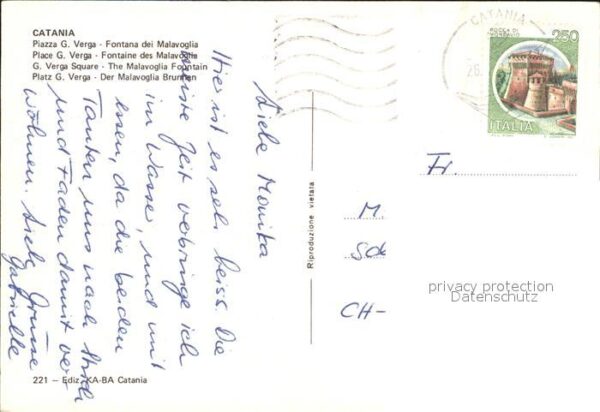 CATANIA
Piazza G. Verga - Fontana dei Malavoglia
Place G. Verga - Fontaine des Malavoglia
G. Verga Square - The Malavoglia Fountain
Platz G. Verga - Der Malavoglia Brunnen
Liebe Monika
Hier ist es sehr heiss. Die
meiste Zeit verbringe ich
im Wasser, und mit
essen, da die beiden
Tanten uns nach Strich
und Faden damit ver
wöhnen. Liebe Grüsse
Gabrielle
221 - Ediz. KA-BA Catania
Riproduzione vietata
CATANIA
26.
250
ITALIA
Fr.
M.
Sch
CH-
privacy protection
Datenschutz